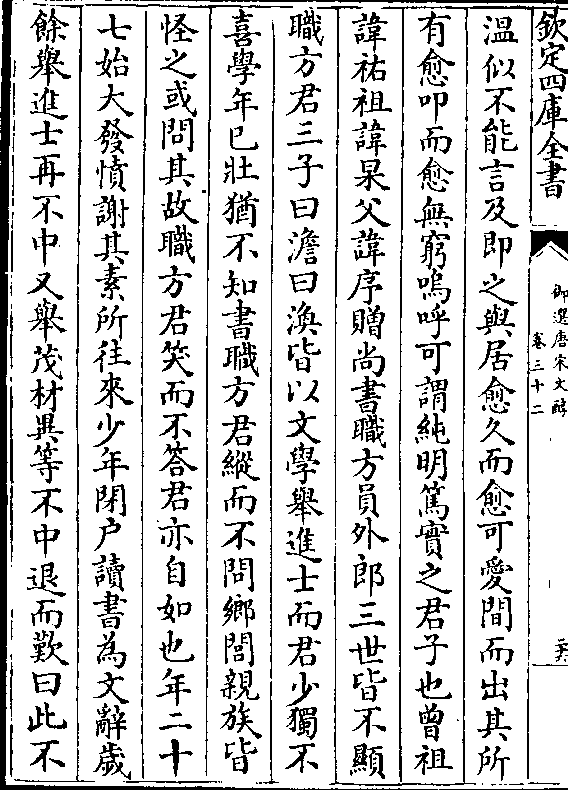 欽定四庫全書
御選唐宋文醇
卷三十二
溫似不能言及即之與居愈久而愈可愛間而出其所
有愈叩而愈無窮嗚呼可謂純明篤實之君子也曾祖
諱祐祖諱杲父諱序贈尚書職方員外郎三世皆不顯
職方君三子曰澹曰渙皆以文學舉進士而君少獨不
喜學年已壯猶不知書職方君縱而不問鄉閭親族皆
怪之或問其故職方君笑而不答君亦自如也年二十
七始大發憤謝其素所往來少年閉户讀書為文辭歲
餘舉進士再不中又舉茂材異等不中退而歎曰此不